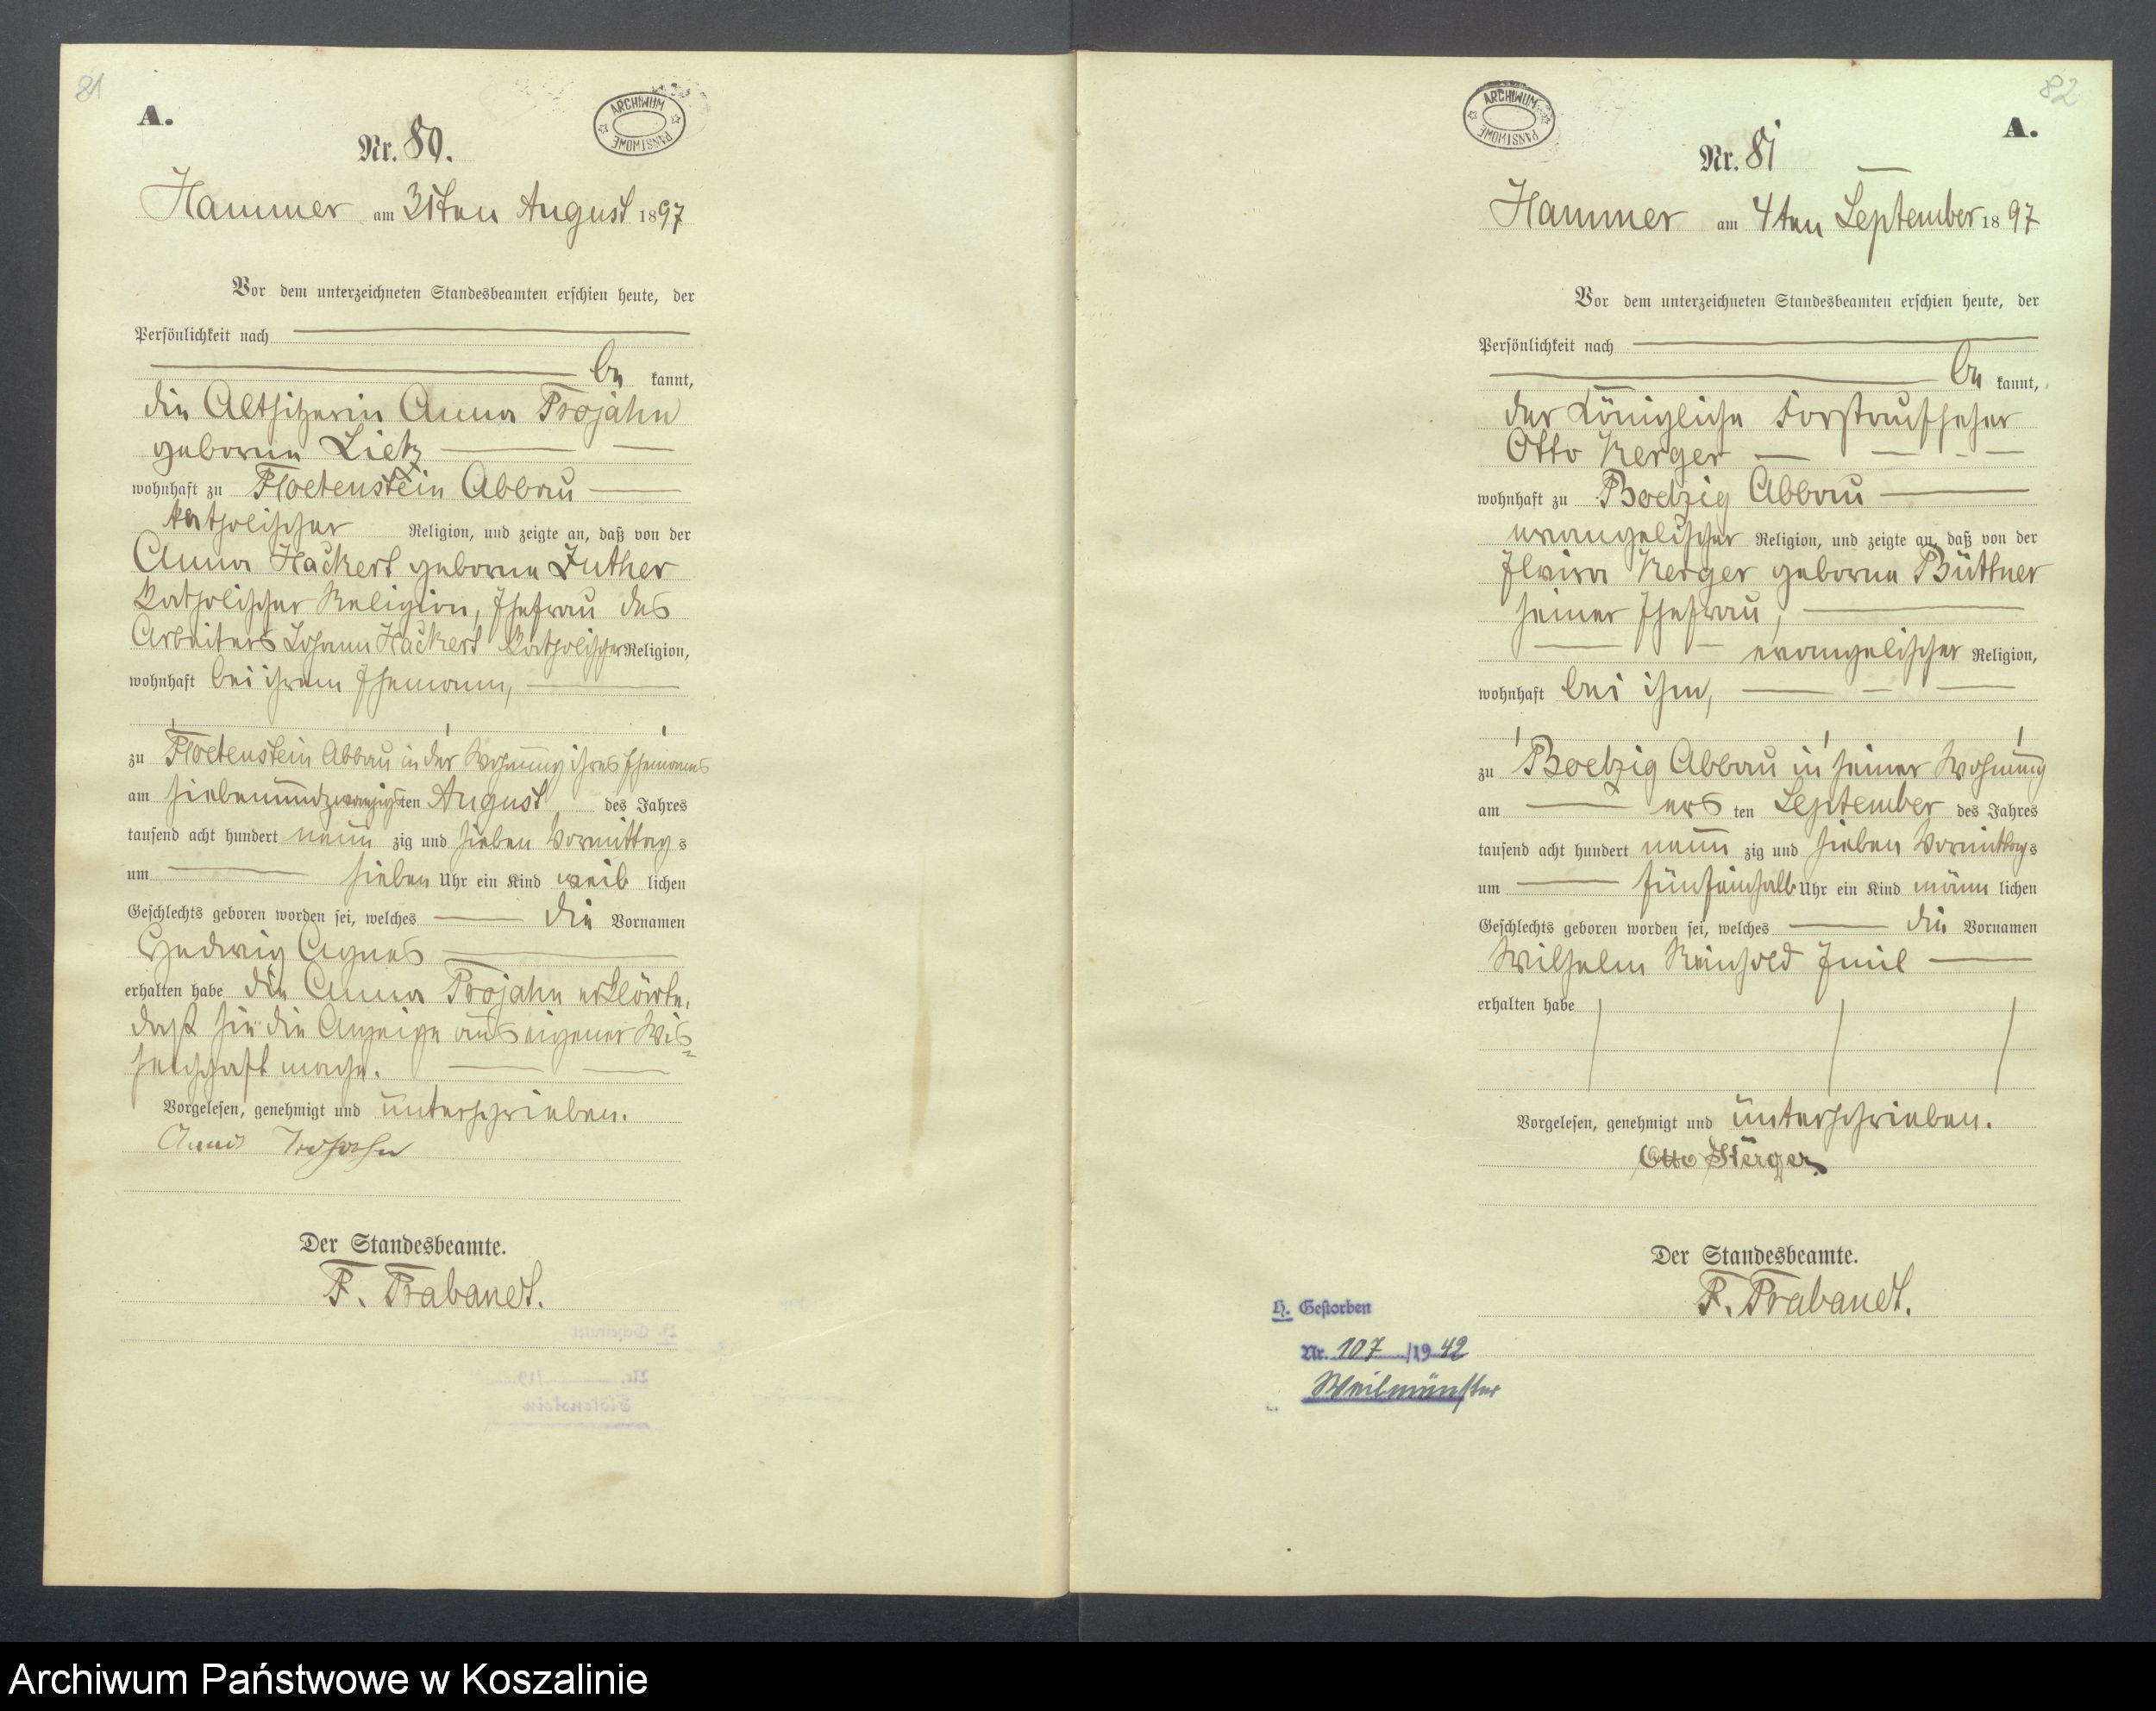 81
A.
ARCHIWUM PAŃSTWOWE
Nr. 80.
Hammer am 31ten August 1897
Vor dem unterzeichneten Standesbeamten erschien heute, der
Persönlichkeit nach
be kannt,
die Altsitzerin Anna Trojahn
geborne Lietz
wohnhaft zu Floetenstein Abbau
katholischer Religion, und zeigte an, daß von der
Anna Hackert geborne Luther
katholischer Religion, Ehefrau des
Arbeiters Johann Hackert katholischer Religion,
wohnhaft bei ihrem Ehemann,
zu Floetenstein Abbau in der Wohnung ihres Ehemannes
am siebenundzwanzigsten August des Jahres
tausend acht hundert neun zig und sieben Vormittags
um sieben Uhr ein Kind weib lichen
Geschlechts geboren worden sei, welches die Vornamen
Hedwig Agnes
erhalten habe die Anna Trojahn erklärte,
daß sie die Anzeige aus eigener Wis=
senschaft mache.
Vorgelesen, genehmigt und unterschrieben.
Anna Trojahn
Der Standesbeamte.
F. Brabandt.
82
A.
ARCHIWUM PAŃSTWOWE
Nr. 81
Hammer am 4ten September 1897
Vor dem unterzeichneten Standesbeamten erschien heute, der
Persönlichkeit nach
be kannt,
der Königliche Forstaufseher
Otto Kerger
wohnhaft zu Abbau
evangelischer Religion, und zeigte an, daß von der
Elvira Kerger geborne Büttner
seiner Ehefrau,
evangelischer Religion,
wohnhaft bei ihm,
zu Abbau in seiner Wohnung
am ers ten September des Jahres
tausend acht hundert neun zig und sieben Vormittags
um fünfeinhalb Uhr ein Kind männ lichen
Geschlechts geboren worden sei, welches die Vornamen
Wilhelm Reinhold Emil
erhalten habe
Vorgelesen, genehmigt und unterschrieben.
Otto Kerger
Der Standesbeamte.
F. Brabandt.
H. Gestorben
Nr. 107 /1942
Weilmünster
Archiwum Państwowe w Koszalinie